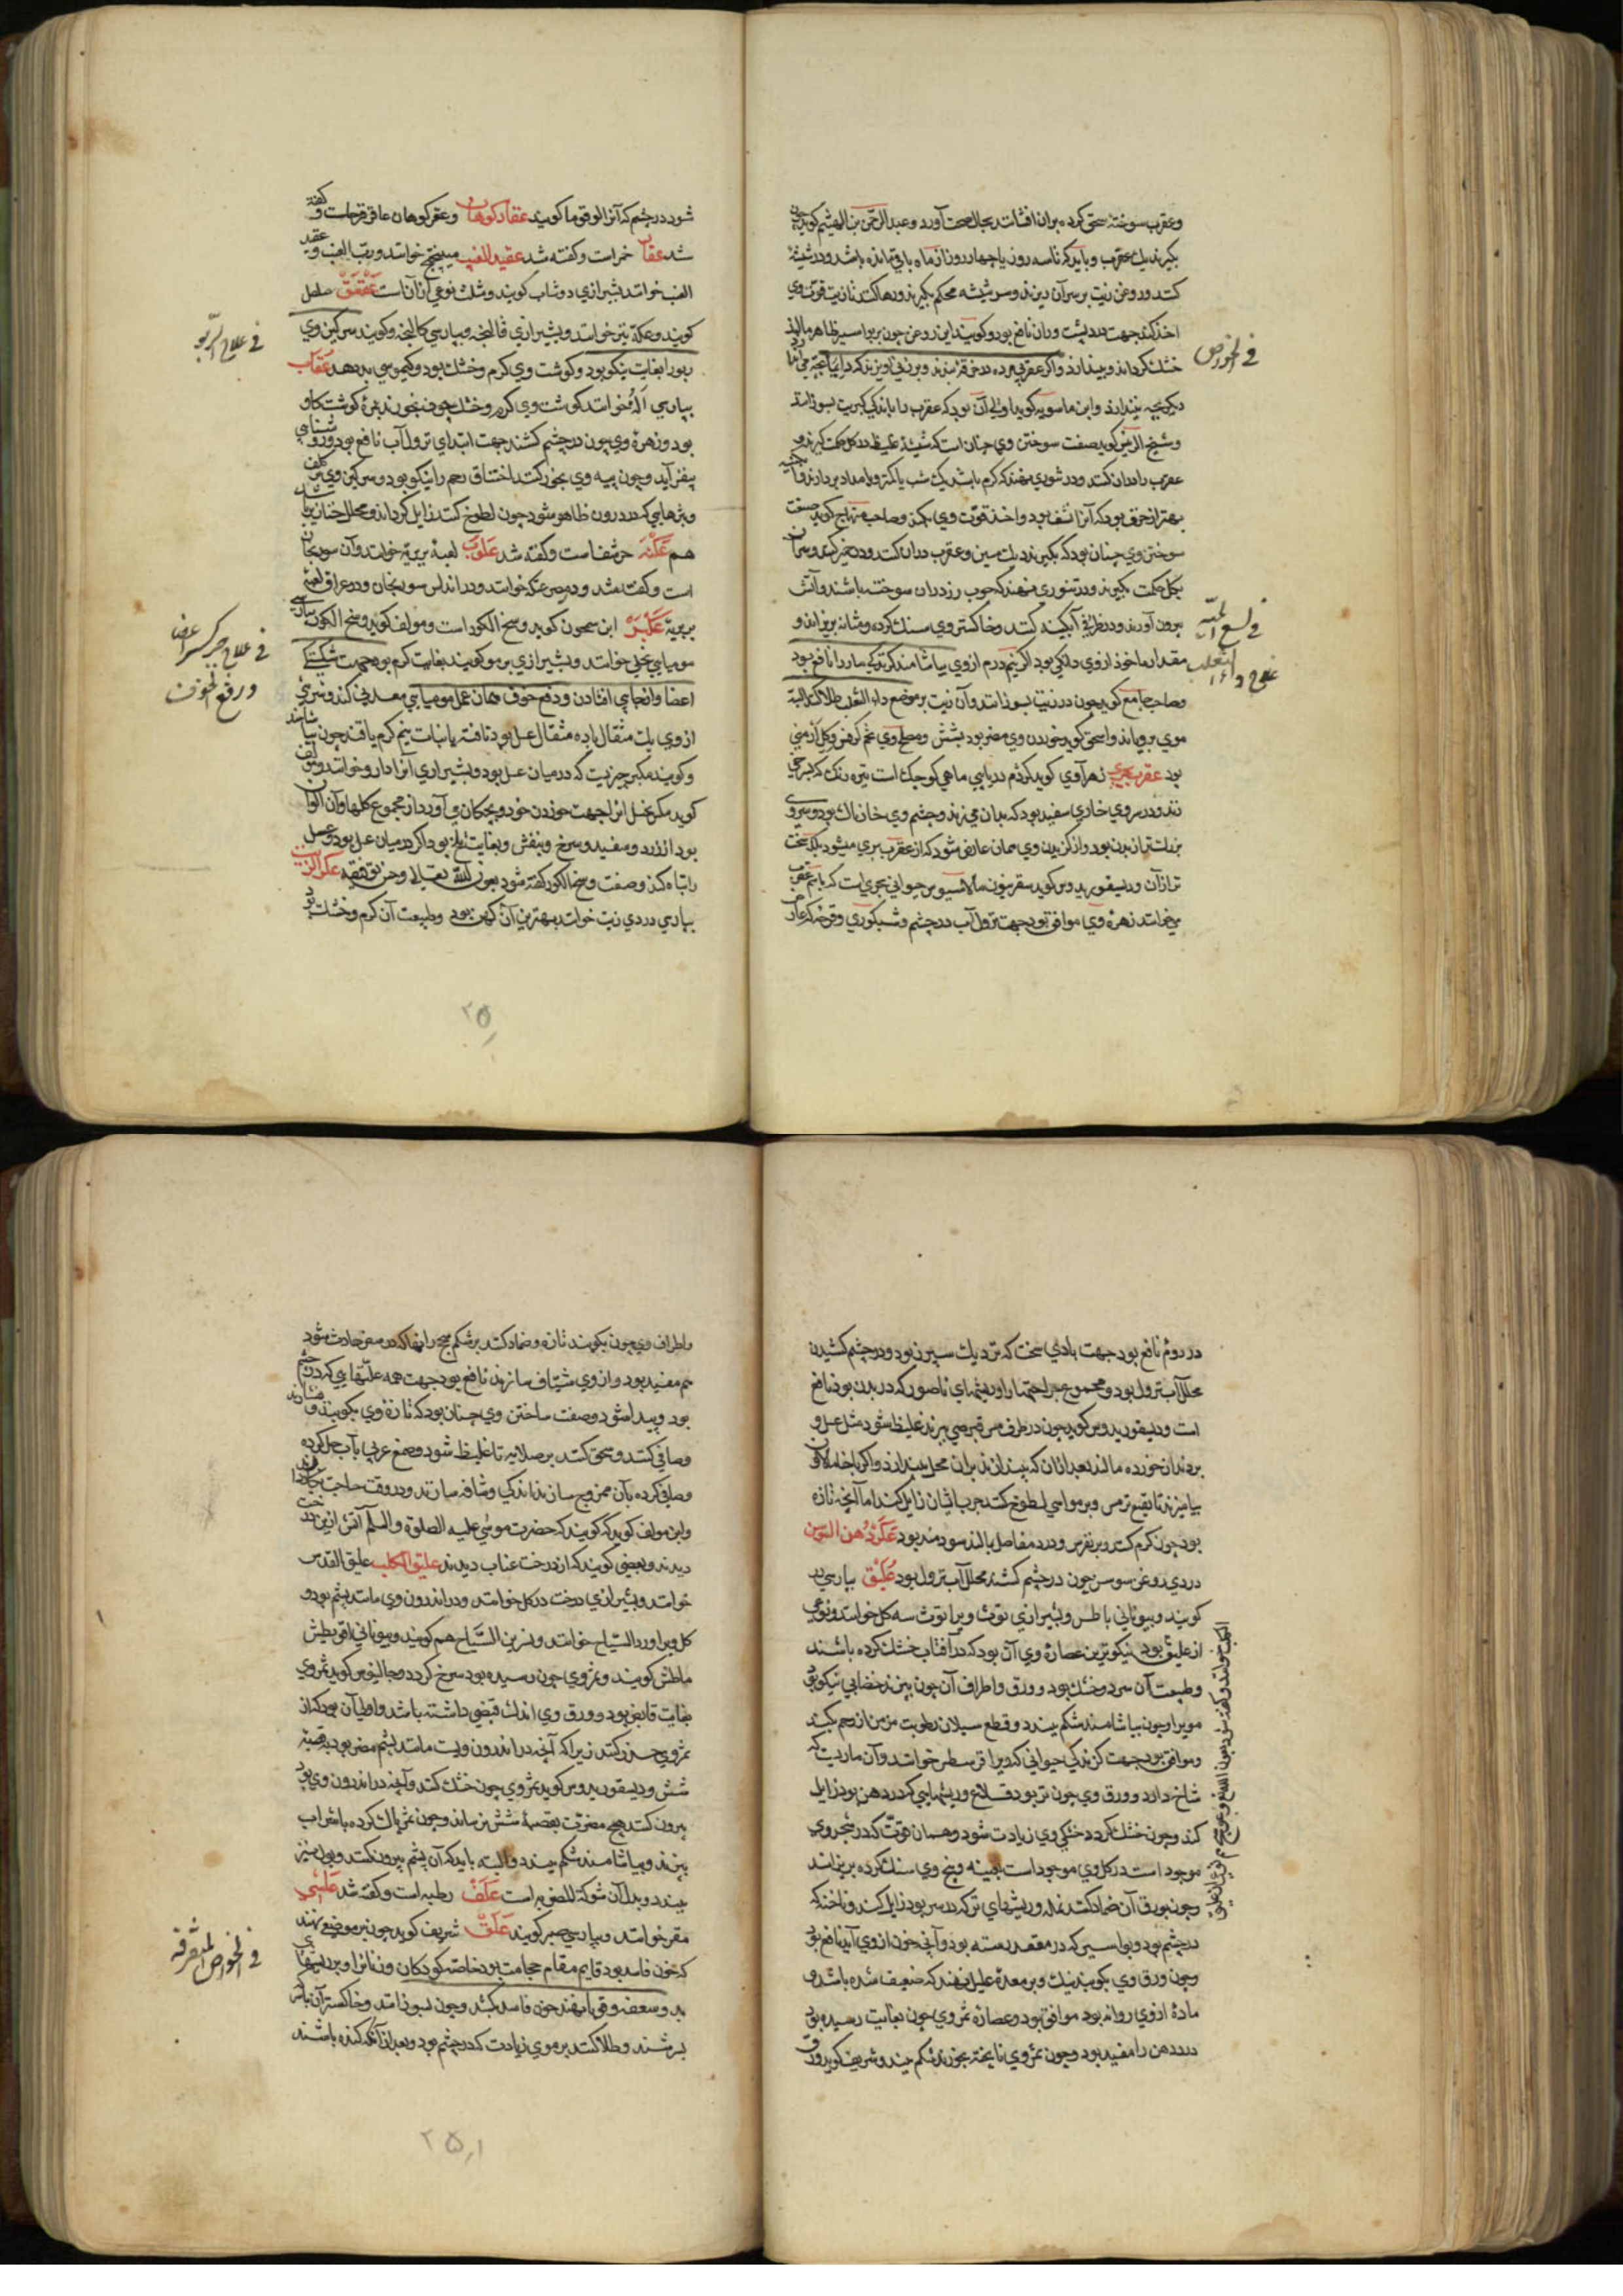 وعقرب سوخته سحق کرده بران افشانند بحال صحت آورد و عبد الرحمن بن الهیثم کوید چون
بکیرند یک عقرب و باید که تا سه روز یا چهار روز از ماه باقی مانده باشد و در شیشهٔ
کنند و روغن زیت بر سر آن ریزند و سر شیشه محکم بکیرند و رها کنند تا زیت قوت وی
اخذ کند جهت درد پشت و ران نافع بود و کویند این روغن چون بر بواسیر ظاهر مالند
خشک کرداند و بیندازد واکر عقربی مرده در خرقه بندند و بر زنی آویزند که
في الخواص
دیکر بچه نیندازد و ابن ماسویه کوید اولی آن بود که عقرب را بکبریت بسوزانند
و شیخ الرئیس کوید صفت سوختن وی چنان است که شیشهٔ غلیظ در کل حکمت کیرند و
عقرب را در ان کنند و در تنوری نهند که کرم باشد یک شب یا کمتر و بامداد بردارند و آبکینه
بهتر از خزف بود که آن نشف بود و اخذ قوت وی بکند و صاحب منهاج کوید صفت
سوختن وی چنان بود که بکیرند دیک مسین و عقرب در ان کنند و در خمیر کیرند و سر آن
بکل حکمت بکیرند و در تنوری نهند که چوب رز در ان سوخته باشند و آتش
برون آورند و در ظرفی آبکینه کنند و خاکستر وی سنک کرده و مثانه بریزاند و
في لسع الحية
مقدار ماخوذ از وی دانکی بود اکر نیم درم از وی بیاشامند کزیدکی مار را نافع بود
علاج داء الثعلب
و صاحب جامع کوید چون در زیت بسوزانند و آن زیت بر موضع داء الثعلب طلا کنند البته
موی برویاند و اسحق کوید خوردن وی مضر بود بشش و مصلح وی تخم کرفس و کل ارمنی
بود عقرب بحری زهراوی کوید کژدم دریایی ماهی کوچک است تیره رنک که بسرخی
زند و در سر وی خاری سفید بود که بدان می زند و چشم وی خار ناک بود و سر وی
بزرکتر از بدن بود و از کزیدن وی همان عارض شود که از عقرب بری میشود بلکه سخت
تر از آن و دیسقوریدوس کوید سقربیون ثالاسیوس حیوانی بحری است که باسم عقرب
می خوانند زهره وی موافق بود جهت نزول آب در چشم و شبکوری و قرحه که عارض
شود در چشم که آنرا لوقوما کویند عقار کوهان و عقر کوهان عاقرقرحاست و کفته
شد عقار خمر است و کفته شد عقید العنب میبختج خوانند و رب العنب و عقد
العنب خوانند بشیرازی دوشاب کویند و مثلث نوعی از ان است عقعق صلصل
کویند و عکه نیز خوانند و بشیرازی قالنجه و بپارسی کالنجه و کویند سرکین وی
في علاج الربو
ربو را بغایت نیکو بود و کوشت وی کرم و خشک بود و کیموس بد دهد عقاب
بپارسی آله خوانند کوشت وی کرم و خشک چون بخورند بمزهٔ کوشت کاو
بود و زهره وی چون در چشم کشند جهت ابتدای نزول آب نافع بود و روشنایی
بیفزاید و چون پیه وی بخور کنند اختناق رحم را نیکو بود و سرکین وی کلف
و بثرهایی که در درون ظاهر شود چون لطوخ کنند زایل کرداند و محلل خنازیر باشد
هم عکنه حرشف است و کفته شد عکوب لعبهٔ بربریه خوانند و آن سورنجان
است و کفته شد و در مصر عنکه خوانند و در اندلس سورنجان و در عراق لعبهٔ
بربریه عکبر ابن سمحون کوید وسخ الکور است و مولف کوید وسخ الکور بپارسی
مومیایی نحلی خوانند و بشیرازی برمو کویند بغایت کرم بود جهت شکستکی
في علاج جبر کسر اعضا
و رفع الخوف
اعضا و از جایی افتادن و دفع خوف همان عمل مومیایی معدنی کند و شربتی
از وی یک مثقال با ده مثقال عسل بود تا فتر یا نبات نیم کرم یا قند چون بیاشامند
و کویند عکبر چیزیست که در میان عسل بود و بشیرازی آنرا دارو خوانند و مؤلف
کوید عکبر نحل از جهت خوردن خود و بچکان می آورد از مجموع کلها و آن الوان
بود از زرد و سفید و سرخ و بنفش و بغایت تلخ بود اکر در میان عسل بود عسل
را تباه کند و صفت وسخ الکور کفته شود بعون الله تعالی و حسن توفیقه عکر الزیت
بپارسی دردی زیت خوانند بهترین آن کهن بود و طبیعت آن کرم و خشک بود
۲۵۰
در دوم نافع بود جهت بادی سخت که نزدیک سپرز بود و در چشم کشیدن
محلل آب نزول بود و مجموع جراحتها را و ریشهای ناصور که در بدن بود نافع
است و دیسقوریدوس کوید چون در ظرف مس قبرصی بپزند غلیظ شود مثل عسل و
بر دندان خورده مالند بعد از ان که بیندازند بران محل بیندازد و اکر با خامالاون
بیامیزند تا نقیع ترمس و بر مواشی لطوخ کنند جرب ایشان زایل کند اما آنچه تازه
بود چون کرم کنند و بر نقرس و درد مفاصل بمالند سودمند بود عکر دهن السوسن
دردی روغن سوسن چون در چشم کشند محلل آب نزول بود علیق بپارسی در
کویند و بیونانی باطس و بشیرازی توت و برا توث سه کل خوانند و نوعی
از علیق بود نیکوترین عصاره وی آن بود که در آفتاب خشک کرده باشند
و طبیعت آن سرد و خشک بود و ورق و اطراف آن چون بپزند خضابی نیکو بود
مویرا و چون بیاشامند شکم ببندد و قطع سیلان رطوبت مزمن از رحم بکند
و موافق بود جهت کزندکی حیوانی که ویرا قرسطس خوانند و آن ماریست که
شاخ دارد و ورق وی چون تر بود قلاع و ریشهایی که در دهن بود زایل
کند و چون خشک کردد خشکی وی زیادت شود و همان قوت که در شجر وی
موجود است در کل وی موجود است بعینه و بیخ وی سنک کرده بریزاند
و چون بورق آن ضماد کنند نمله و ریشهای تر که در سر بود زایل کند و ناخنه که
در چشم بود و بواسیر که در مقعد رسته بود و آنچه خون از وی آید نافع بود
و چون ورق وی بکوبند نیک و بر معدهٔ علیل نهند که ضعیف شده باشد و
مادهٔ از وی روانه بود موافق بود و عصاره ثمر وی چون بغایت رسیده بود
درد دهن را مفید بود و چون ثمر وی نا پخته بخورند شکم ببندد و شریف کوید ورق
و اطراف وی چون بکوبند تازه و ضماد کنند بر شکم سحج را نافع که در سفر حادث شود
هم مفید بود و از وی شیاف سازند نافع بود جهت همه علتهایی که در چشم
بود و پیدا شود و صفت ساختن وی چنان بود که تازه وی بکوبند و بیفشارند
و صافی کنند و سحق کنند بر صلایه تا غلیظ شود و صمغ عربی بآب حل کرده
و صافی کرده بآن ممزوج سازند اندکی و شیافه سازند و در وقت حاجت
و ابن مولف کوید که کویند که حضرت موسی علیه الصلوة والسلم آتش ازین درخت
دیدند و بعضی کویند که از درخت عناب دیدند علیق الکلب علیق القدس
خوانند و بشیرازی درخت درکل خوانند و در اندرون وی مانند پشم بود و
کل ویرا ورد السیاح خوانند و نسرین السیاح هم کویند و بیونانی قونس
باطس کویند و ثمر وی چون رسیده بود سرخ کردد و جالینوس کوید ثمر وی
بغایت قابض بود و ورق وی اندک قبضی داشته باشد و اولی آن بود که از
ثمر وی حذر کنند زیرا که آنچه در اندرون ویست مانند پشم مضر بود بقصبهٔ
شش و دیسقوریدوس کوید ثمر وی چون خشک کنند و آنچه در اندرون وی بود
بیرون کنند هیچ مضرت بقصبهٔ شش نرساند و چون ثمر پاک کرده با شراب
بپزند و بیاشامند شکم ببندد و البته باید که آن پشم بیرون کنند و بواسیر
ببندد و بدل آن شوکة المصریه است علف رطبه است و کفته شد علسی
مقر خوانند و بپارسی صبر کویند علق شریف کوید چون بر موضعی نهند
في الخواص المتفرقة
که خون فاسد بود قایم مقام حجامت بود خاصه کودکان و زنانرا و بر ریشهای
بد و سعفه و قوبا نهند خون فاسد بکشد و چون بسوزانند و خاکستر آن با سرکه
بسرشند و طلا کنند بر موی زیادت که در چشم بود و بعد از آنکه کنده باشند
۲۵۱